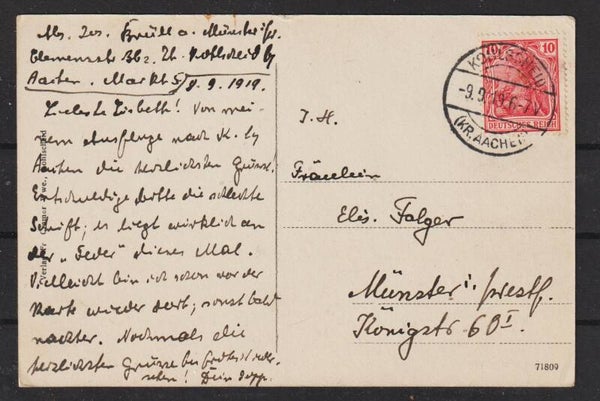 Abs. Jos. Brüll a. Münster i/w.
Clemensstr. 36 z. Zt. Kohlscheid b/
Aachen. Markt 5/ 8.9.1919.
Liebste Lisbeth! Von mei-
nem Ausfluge nach K. by
Aachen die herzlichsten Grüsse.
Entschuldige bitte die schlechte
Schrift; es liegt wirklich an
der „Feder" dieses Mal.
Vielleicht bin ich schon vor der
Karte wieder dort; sonst bald
nachher. Nochmals die
herzlichsten Grüsse bis frohes Wieder-
sehen! Dein Sepp.
J. H.
Fräulein
Elis. Folger
Münster i. Westf.
Königstr. 60 I.
KOHLSCHEID
-9.9.19. 6-7 V
(KR. AACHEN)
10
DEUTSCHES REICH
Verlag
71809